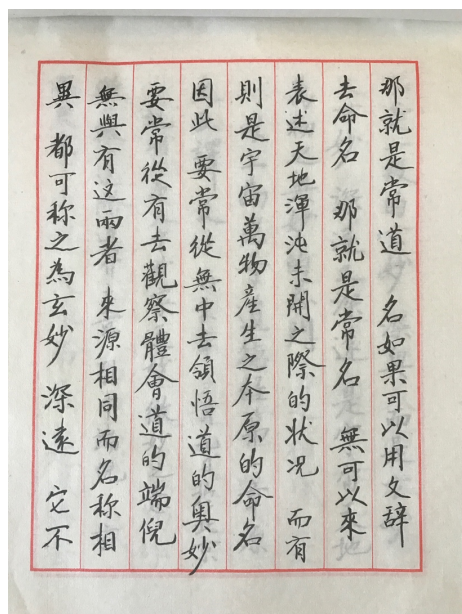 那就是常道 名如果可以用文辞
去命名 那就是常名 無可以來
表述天地渾沌未開之際的状况 而有
則是宇宙萬物產生之本原的命名
因此 要常從無中去領悟道的奥妙
要常從有去觀察體會道的端倪
無與有这兩者 來源相同而名称相
異 都可称之為玄妙 深遠 它不